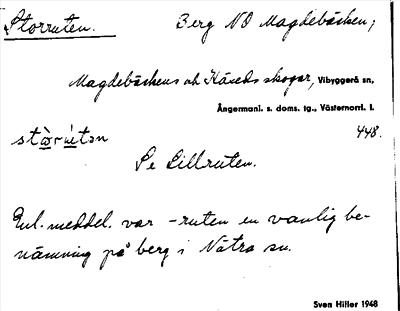 Storruten. Berg NO Magdebäcken;
Magdebäckens och Häreds skogar, Vibyggerå sn,
Ångermanl. s. doms. tg., Västernorrl. l.
448.
Se Lillruten.
Enl. meddel. var -ruten en vanlig be-
nämning på berg i Nätra sn.
Sven Hiller 1948